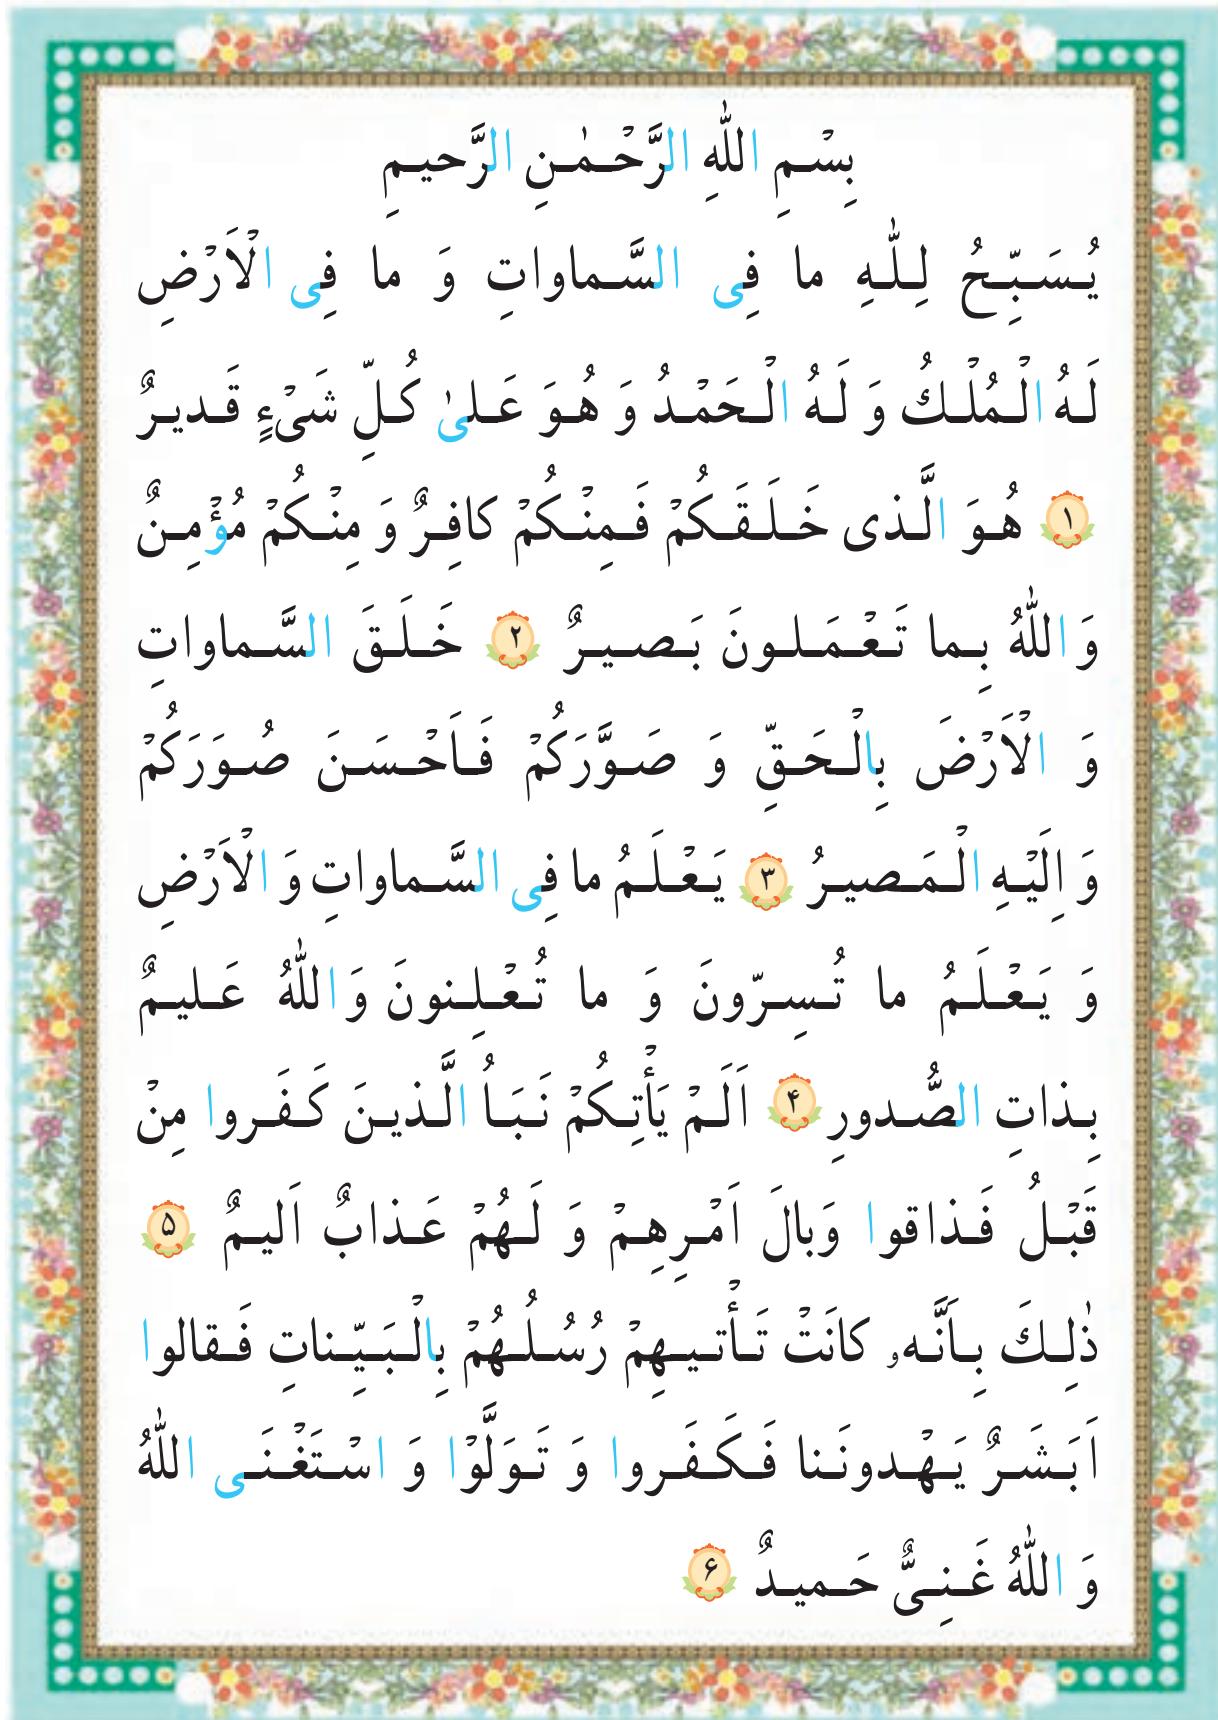 بِسْمِ اللّٰهِ الرَّحْمٰنِ الرَّحیمِ
یُسَبِّحُ لِلّٰهِ ما فِی السَّماواتِ وَ ما فِی الْاَرْضِ
لَهُ الْمُلْكُ وَ لَهُ الْحَمْدُ وَ هُوَ عَلیٰ کُلِّ شَیْءٍ قَدیرٌ
۱ هُوَ الَّذی خَلَقَکُمْ فَمِنْکُمْ کافِرٌ وَ مِنْکُمْ مُؤْمِنٌ
وَ اللّٰهُ بِما تَعْمَلونَ بَصیرٌ ۲ خَلَقَ السَّماواتِ
وَ الْاَرْضَ بِالْحَقِّ وَ صَوَّرَکُمْ فَاَحْسَنَ صُوَرَکُمْ
وَ اِلَیْهِ الْمَصیرُ ۳ یَعْلَمُ ما فِی السَّماواتِ وَ الْاَرْضِ
وَ یَعْلَمُ ما تُسِرّونَ وَ ما تُعْلِنونَ وَ اللّٰهُ عَلیمٌ
بِذاتِ الصُّدورِ ۴ اَلَمْ یَأْتِکُمْ نَبَاُ الَّذینَ کَفَروا مِنْ
قَبْلُ فَذاقوا وَبالَ اَمْرِهِمْ وَ لَهُمْ عَذابٌ اَلیمٌ ۵
ذٰلِكَ بِاَنَّهۥ کانَتْ تَأْتیهِمْ رُسُلُهُمْ بِالْبَیِّناتِ فَقالوا
اَبَشَرٌ یَهْدونَنا فَکَفَروا وَ تَوَلَّوْا وَ اسْتَغْنَی اللّٰهُ
وَ اللّٰهُ غَنِیٌّ حَمیدٌ ۶